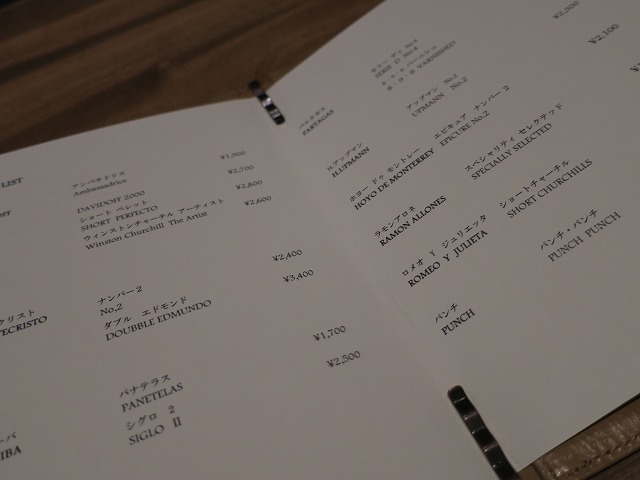 LIST
アンバサドリス
Ambassadrice
¥1,800
DAVIDOFF 2000
¥2,700
ショート ペレット
SHORT PERFECTO
¥2,800
ウィンストンチャーチル アーティスト
Winston Churchill The Artist
¥2,600
ナンバー2
No,2
¥2,400
クリスト
TECRISTO
ダブル エドモンド
DOUBBLE EDMUNDO
¥3,400
パナテラス
PANETELAS
¥1,700
シグロ 2
SIGLO II
¥2,500
IBA
パルタガス
PARTAGAS
SERIE D No.4
VARNISHED
H.アップマン
H.UFMANN
アップマン No.2
UFMANN No.2
¥2,100
ホヨー ドゥ モントレー
HOYO DE MONTERREY
エピキュア ナンバー 2
EPICURE No.2
ラモンアロネ
RAMON ALLONES
スペシャリティ セレクテッド
SPECIALLY SELECTED
ロメオ Y ジュリエッタ
ROMEO Y JULIETA
ショートチャーチル
SHORT CHURCHILLS
パンチ
PUNCH
パンチ・パンチ
PUNCH PUNCH